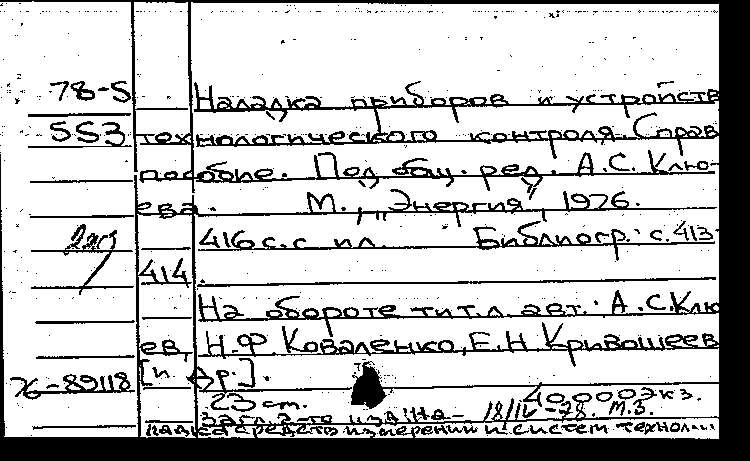 78-5 Наладка приборов и устройств
553 технологического контроля. Справ
пособие. Под общ. ред. А.С. Клю-
ева. М., „Энергия", 1976.
416 с. с ил. Библиогр.: с. 413-
414.
На обороте тит. л. авт.: А.С. Клю
ев, Н.Ф. Коваленко, Е.Н. Кривошеев
[и др.].
76-89118
23 см. 40.000 экз.
Загл. 2-го изд.: На- 18/IV-78. М.З.
ладка средств измерений и систем технол